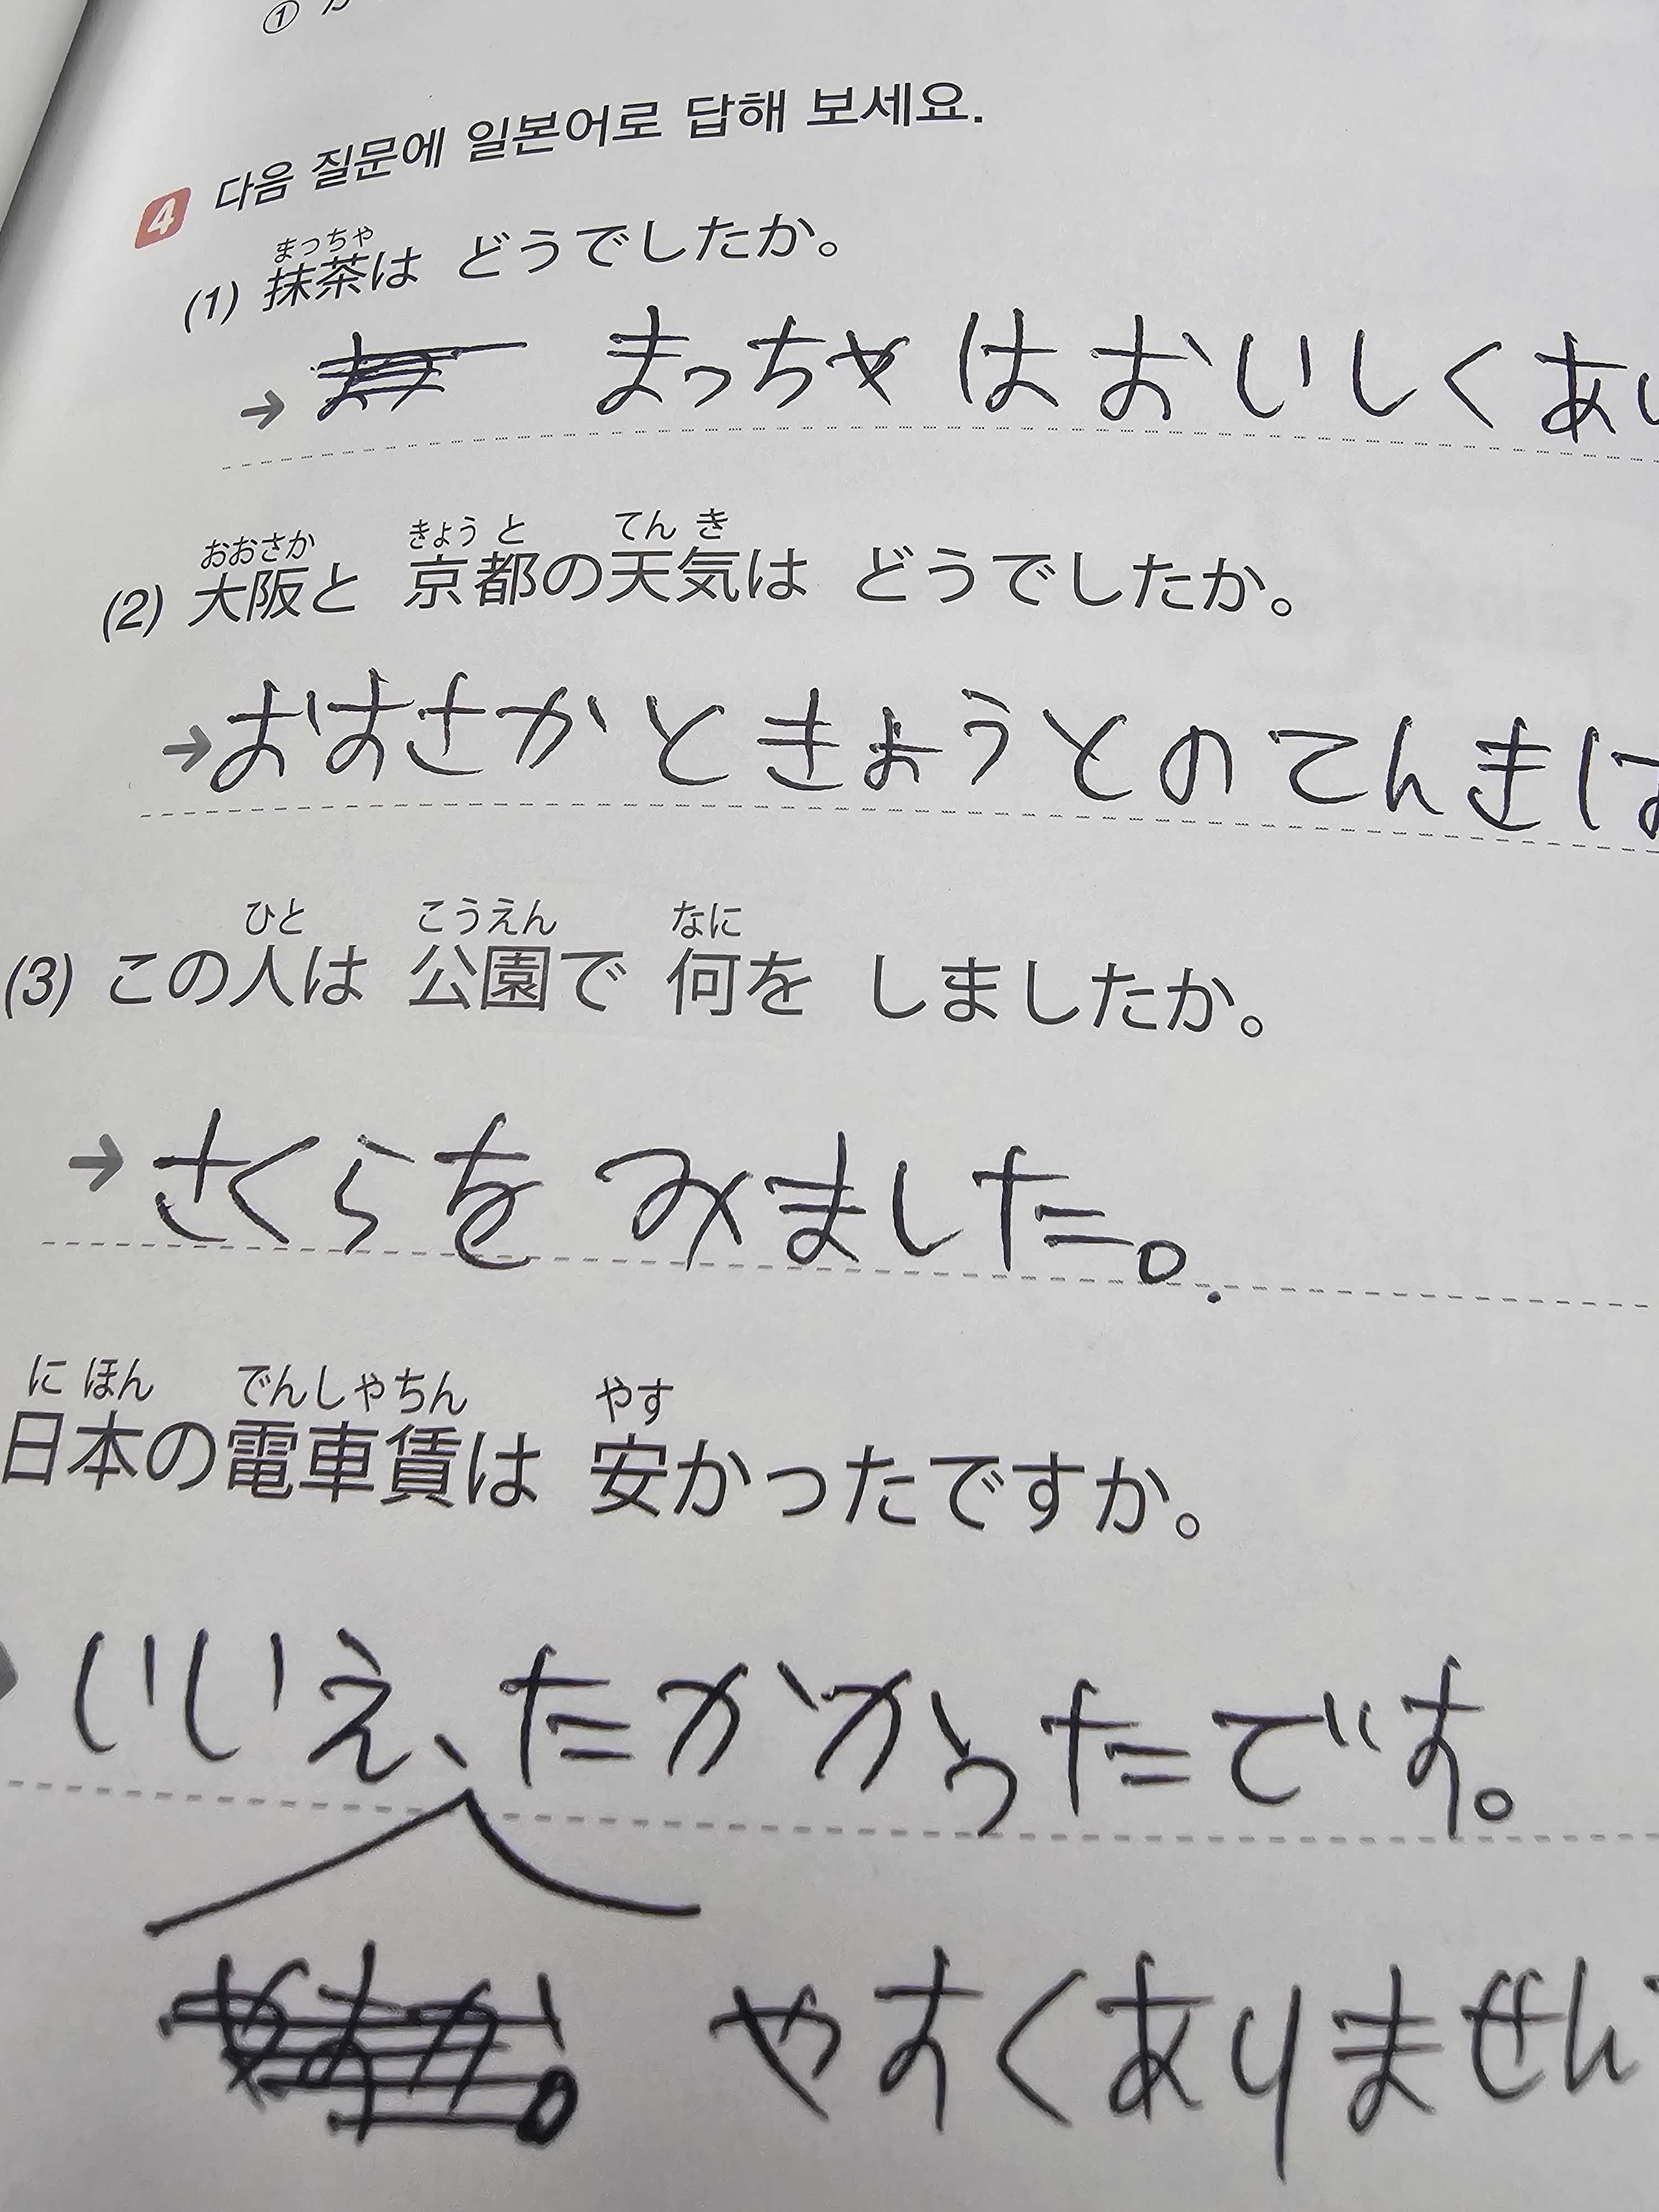 ①
4 다음 질문에 일본어로 답해 보세요.
まっちゃ
(1) 抹茶は どうでしたか。
→ まっちゃ はおいしくあ
おおさか きょうと てんき
(2) 大阪と 京都の天気は どうでしたか。
→ おおさか ときょうとのてんきは
ひと こうえん なに
(3) この人は 公園で 何を しましたか。
→ さくらを みました。
にほん でんしゃちん やす
日本の電車賃は 安かったですか。
いいえ、たかかったです。
やすくありません